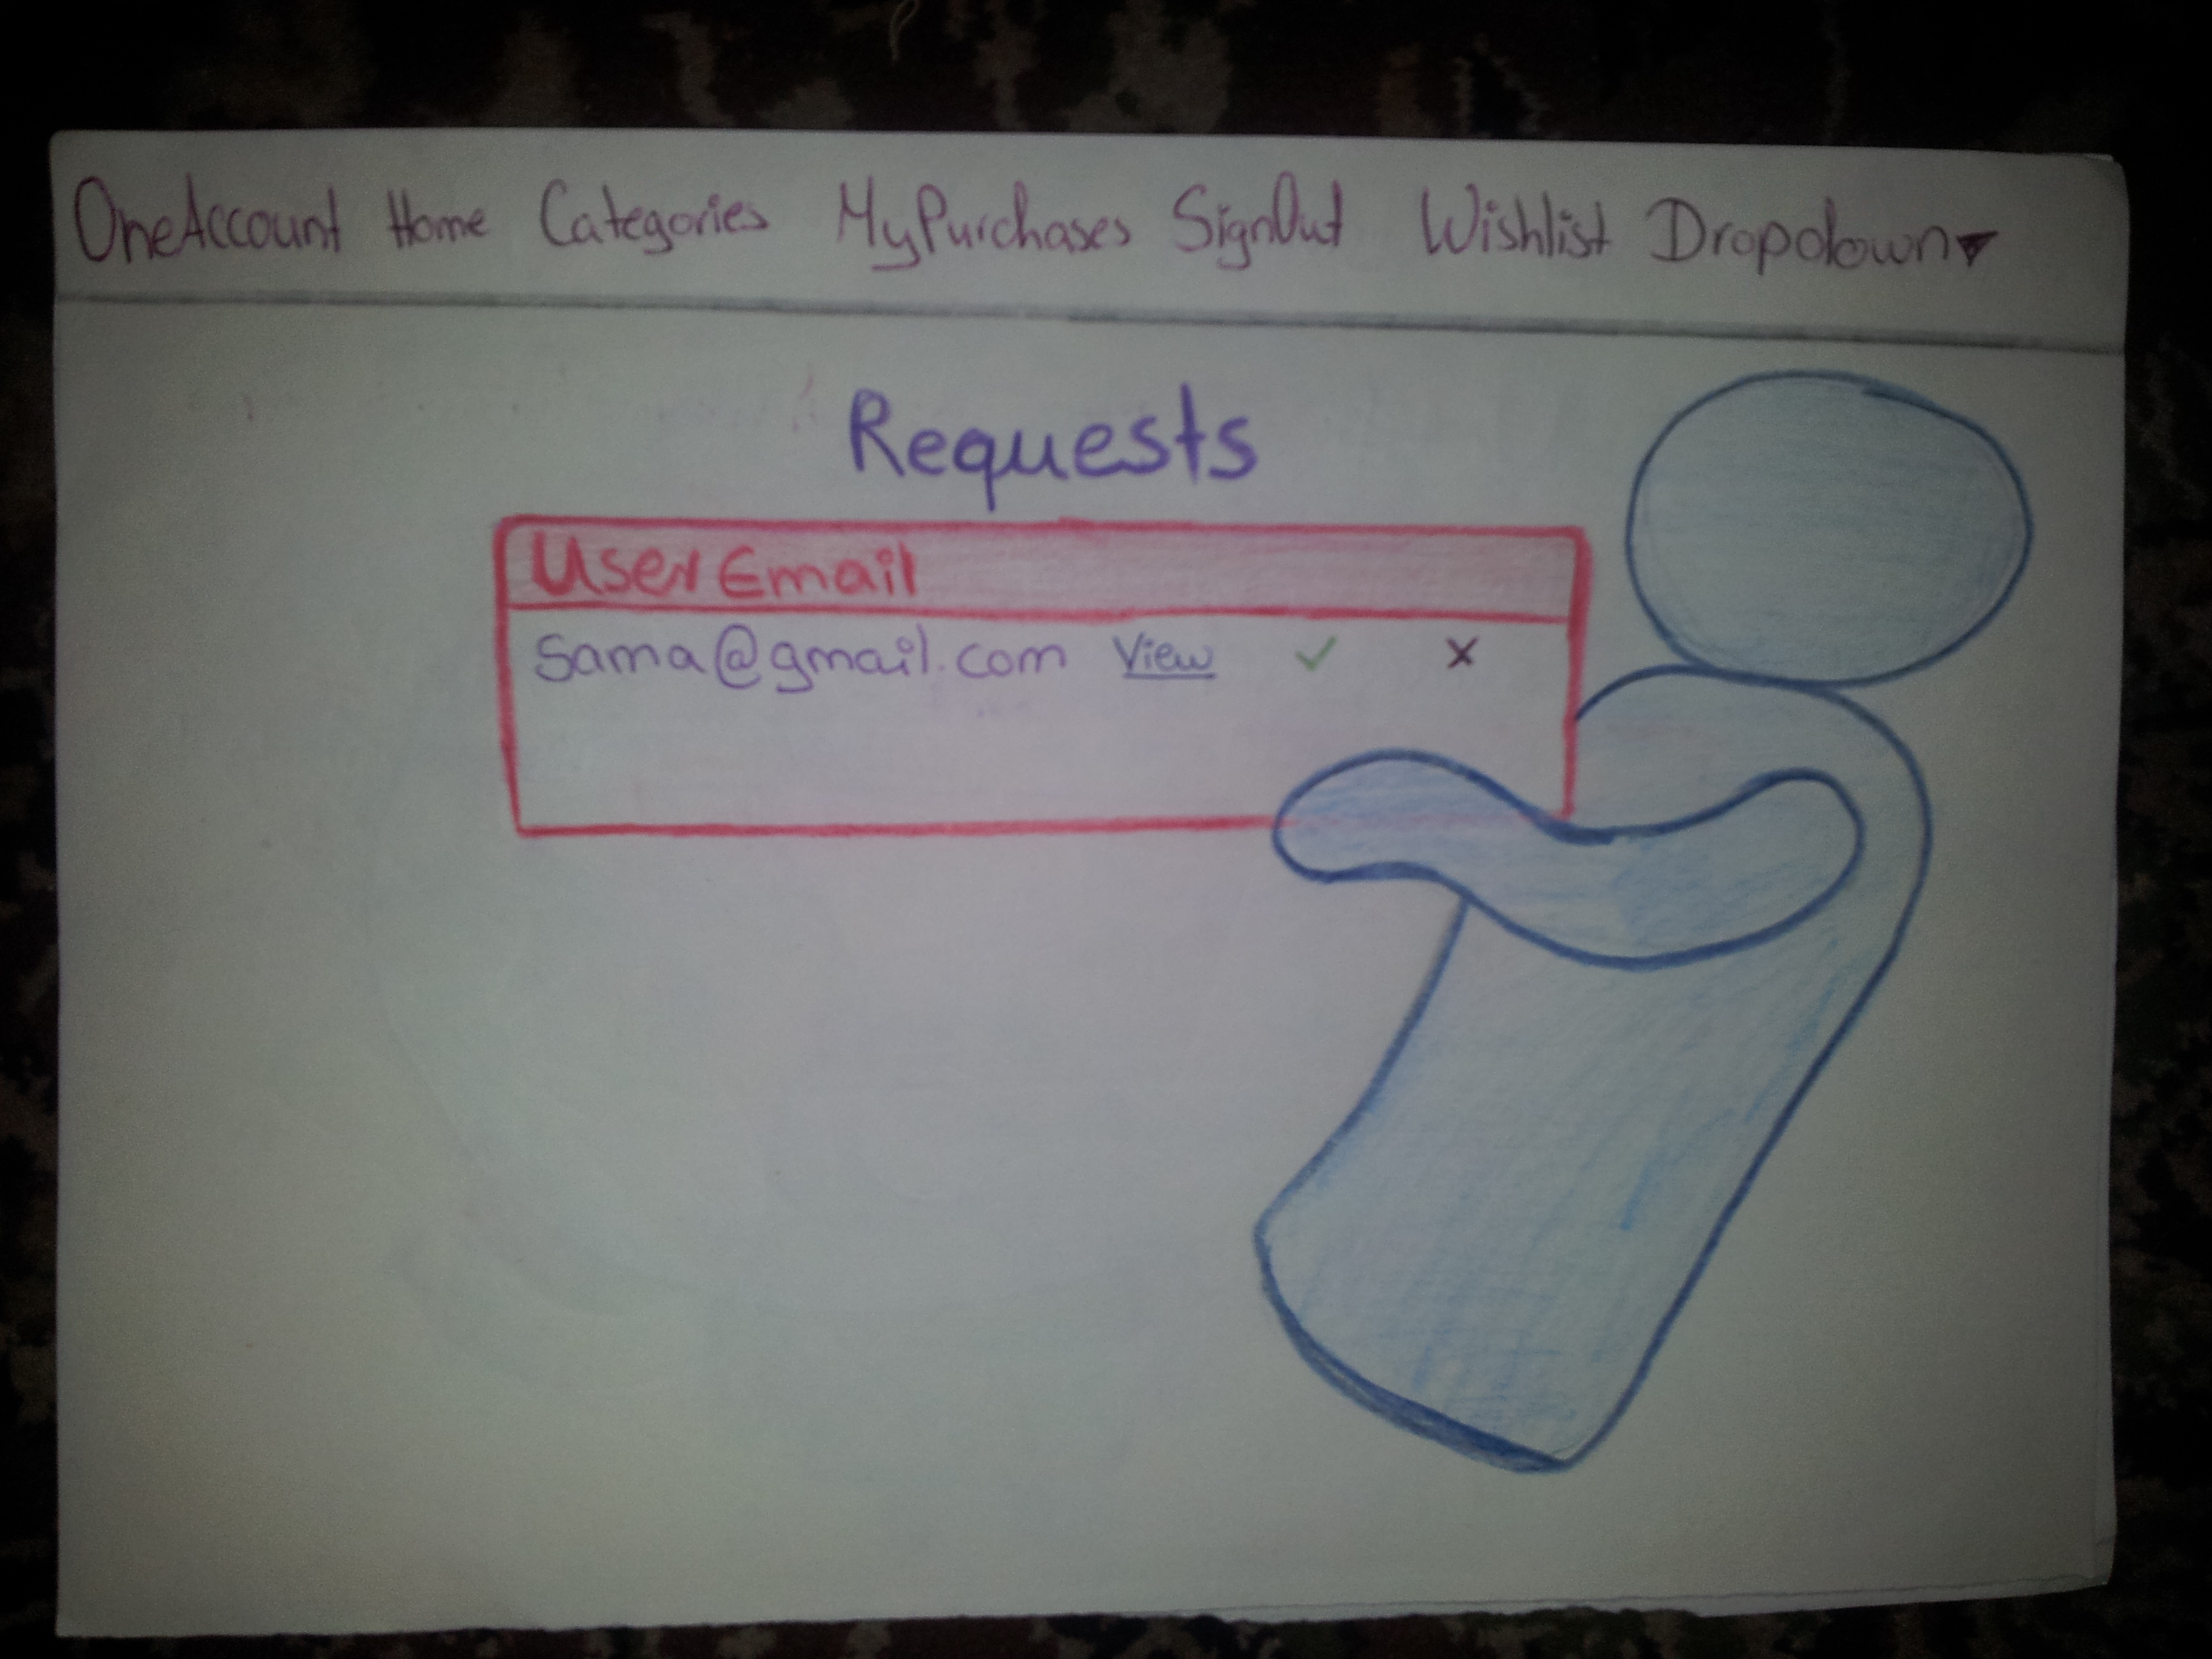 OneAccount Home Categories MyPurchases SignOut Wishlist Dropdown
Requests
User Email
Sama@gmail.com View ✓ x